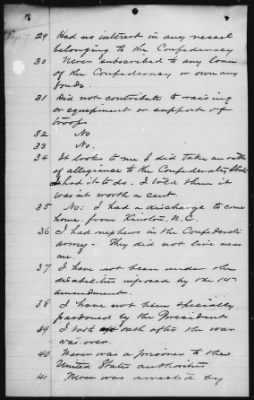 29 Had no interest in any vessel
belonging to the Confederacy
30 Never subscribed to any loan
of the Confederacy or own any
bonds.
31 Did not contribute to raising
or equipment or support of
troops
32 No
33 No.
34 It looks to me I did take an oath
of allegiance to the Confederate States
I had it to do. I told them it
was it worth a cent.
35 No; I had a discharge to come
home, from Kinston, N.C.
36 I had nephews in the Confederate
army - They did not live near
me.
37 I have not been under the
disabilities imposed by the 14th
amendment.
38 I have not been specially
pardoned by the President
39 I took oath after the war
was over.
40 Never was a prisoner to the
United States authorities
41 Never was arrested by